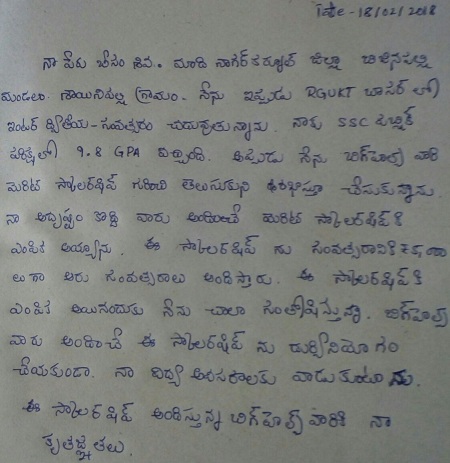 Date - 18/02/2018
నా పేరు బేసం శివ. మాది నాగర్ కర్నూల్ జిల్లా బిజినపల్లి
మండలం. శాయినిపల్లి గ్రామం. నేను ఇప్పుడు RGUKT బాసర్ లో
ఇంటర్ ద్వితీయ - సంవత్సరం చదువుతున్నాను. నాకు SSC పబ్లిక్
పరీక్షలో 9.8 GPA వచ్చింది. అప్పుడు నేను బిగ్‌హెల్ప్ వారి
మెరిట్ స్కాలర్‌షిప్ గురించి తెలుసుకుని దరఖాస్తూ చేసుకున్నాను.
నా అదృష్టం కొద్ది వారు అందించే మెరిట్ స్కాలర్‌షిప్ కి
ఎంపిక అయ్యాను. ఈ స్కాలర్‌షిప్ ను సంవత్సరానికి
లుగా ఆరు సంవత్సరాలు అందిస్తారు. ఈ స్కాలర్‌షిప్ కి
ఎంపిక అయినందుకు నేను చాలా సంతోషిస్తున్నా. బిగ్‌హెల్ప్
వారు అందించే ఈ స్కాలర్‌షిప్ ను దుర్వినియోగం
చేయకుండా. నా విద్య అవసరాలకు వాడుకుంటాను.
ఈ స్కాలర్‌షిప్ అందిస్తున్న బిగ్‌హెల్ప్ వారికి నా
కృతజ్ఞతలు.